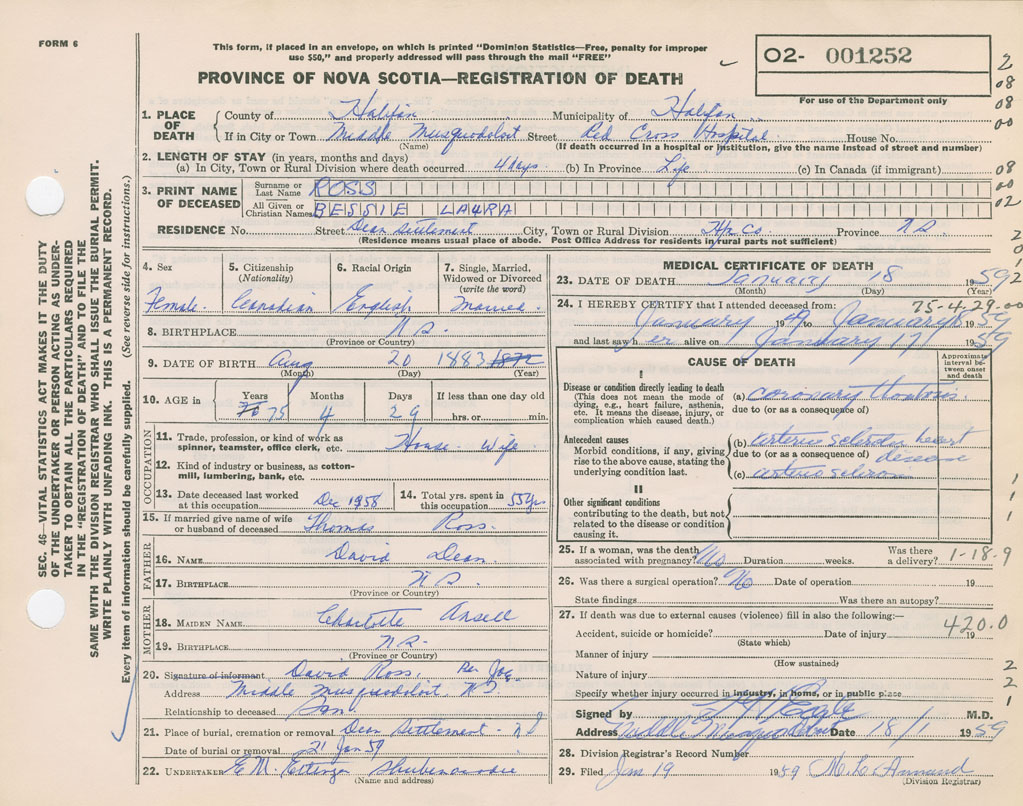 FORM 6
This form, if placed in an envelope, on which is printed "Dominion Statistics—Free, penalty for improper
use $50," and properly addressed will pass through the mail "FREE"
PROVINCE OF NOVA SCOTIA—REGISTRATION OF DEATH
O2- 001252
For use of the Department only
2
08
08
00
08
00
02
2
0
1
2
SEC. 46—VITAL STATISTICS ACT MAKES IT THE DUTY
OF THE UNDERTAKER OR PERSON ACTING AS UNDER-
TAKER TO OBTAIN ALL THE PARTICULARS REQUIRED
IN THE "REGISTRATION OF DEATH" AND TO FILE THE
SAME WITH THE DIVISION REGISTRAR WHO SHALL ISSUE THE BURIAL PERMIT.
WRITE PLAINLY WITH UNFADING INK. THIS IS A PERMANENT RECORD.
Every item of information should be carefully supplied. (See reverse side for instructions.)
1. PLACE OF DEATH
County of Halifax Municipality of Halifax
If in City or Town Middle Musquodoboit Street Red Cross Hospital House No.
(Name) (If death occurred in a hospital or institution, give the name instead of street and number)
2. LENGTH OF STAY (in years, months and days)
(a) In City, Town or Rural Division where death occurred 4 days (b) In Province Life (c) In Canada (if immigrant)
3. PRINT NAME OF DECEASED
Surname or Last Name ROSS
All Given or Christian Names BESSIE LAURA
RESIDENCE No. Street Dean Settlement City, Town or Rural Division Hx Co Province N.S.
(Residence means usual place of abode. Post Office Address for residents in rural parts not sufficient)
4. Sex 5. Citizenship 6. Racial Origin 7. Single, Married,
(Nationality) Widowed or Divorced
(write the word)
Female Canadian English Married
8. BIRTHPLACE N.S.
(Province or Country)
9. DATE OF BIRTH Aug 20 1883
(Month) (Day) (Year)
10. AGE in Years Months Days If less than one day old
75 4 29 hrs. or min.
OCCUPATION
11. Trade, profession, or kind of work as
spinner, teamster, office clerk, etc. House Wife
12. Kind of industry or business, as cotton-
mill, lumbering, bank, etc.
13. Date deceased last worked
at this occupation Dec 1958
14. Total yrs. spent in
this occupation 55 yrs
15. If married give name of wife
or husband of deceased Thomas Ross
FATHER
16. NAME David Dean
17. BIRTHPLACE N.S.
(Province or Country)
MOTHER
18. MAIDEN NAME Charlotte Ansell
19. BIRTHPLACE N.S.
(Province or Country)
20. Signature of informant David Ross Per
Address Middle Musquodoboit, N.S.
Relationship to deceased Son
21. Place of burial, cremation or removal Dean Settlement N S
Date of burial or removal 21 Jan 59
22. UNDERTAKER E M Ettinger Shubenacadie
(Name and address)
MEDICAL CERTIFICATE OF DEATH
23. DATE OF DEATH January 18 1959
(Month) (Day) (Year)
24. I HEREBY CERTIFY that I attended deceased from:
75-4-29.00
January 1949 to January 18 1959
and last saw her alive on January 17 1959
CAUSE OF DEATH
Approximate interval between onset and death
I
Disease or condition directly leading to death
(This does not mean the mode of
dying, e.g., heart failure, asthenia,
etc. It means the disease, injury, or
complication which caused death.)
(a) coronary thrombosis
due to (or as a consequence of)
Antecedent causes
Morbid conditions, if any, giving
rise to the above cause, stating the
underlying condition last.
(b) arterio sclerotic heart
due to (or as a consequence of) disease
(c) arterio sclerosis
II
Other significant conditions
contributing to the death, but not
related to the disease or condition
causing it.
1
1
1
25. If a woman, was the death
associated with pregnancy? No Duration weeks. Was there
a delivery?
1-18-9
26. Was there a surgical operation? No Date of operation 19
State findings Was there an autopsy?
27. If death was due to external causes (violence) fill in also the following:—
420.0
Accident, suicide or homicide? Date of injury 19
(State which)
Manner of injury
(How sustained)
Nature of injury
Specify whether injury occurred in industry, in home, or in public place
2
2
1
Signed by M.D.
Address Middle Musquodoboit Date 18/1 1959
28. Division Registrar's Record Number
29. Filed Jan 19 1959
(Division Registrar)